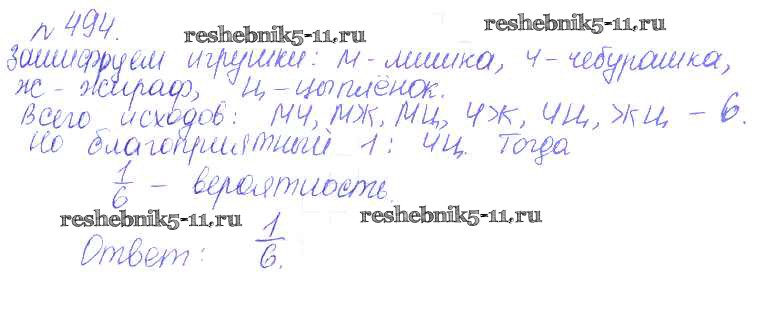 № 494. reshebnik5-11.ru reshebnik5-11.ru
Зашифруем игрушки: М - мишка, Ч - чебурашка,
Ж - жираф, Ц - цыплёнок.
Всего исходов: МЧ, МЖ, МЦ, ЧЖ, ЧЦ, ЖЦ - 6.
Но благоприятный 1: ЧЦ. Тогда
1/6 - вероятность.
reshebnik5-11.ru reshebnik5-11.ru
Ответ: 1/6.